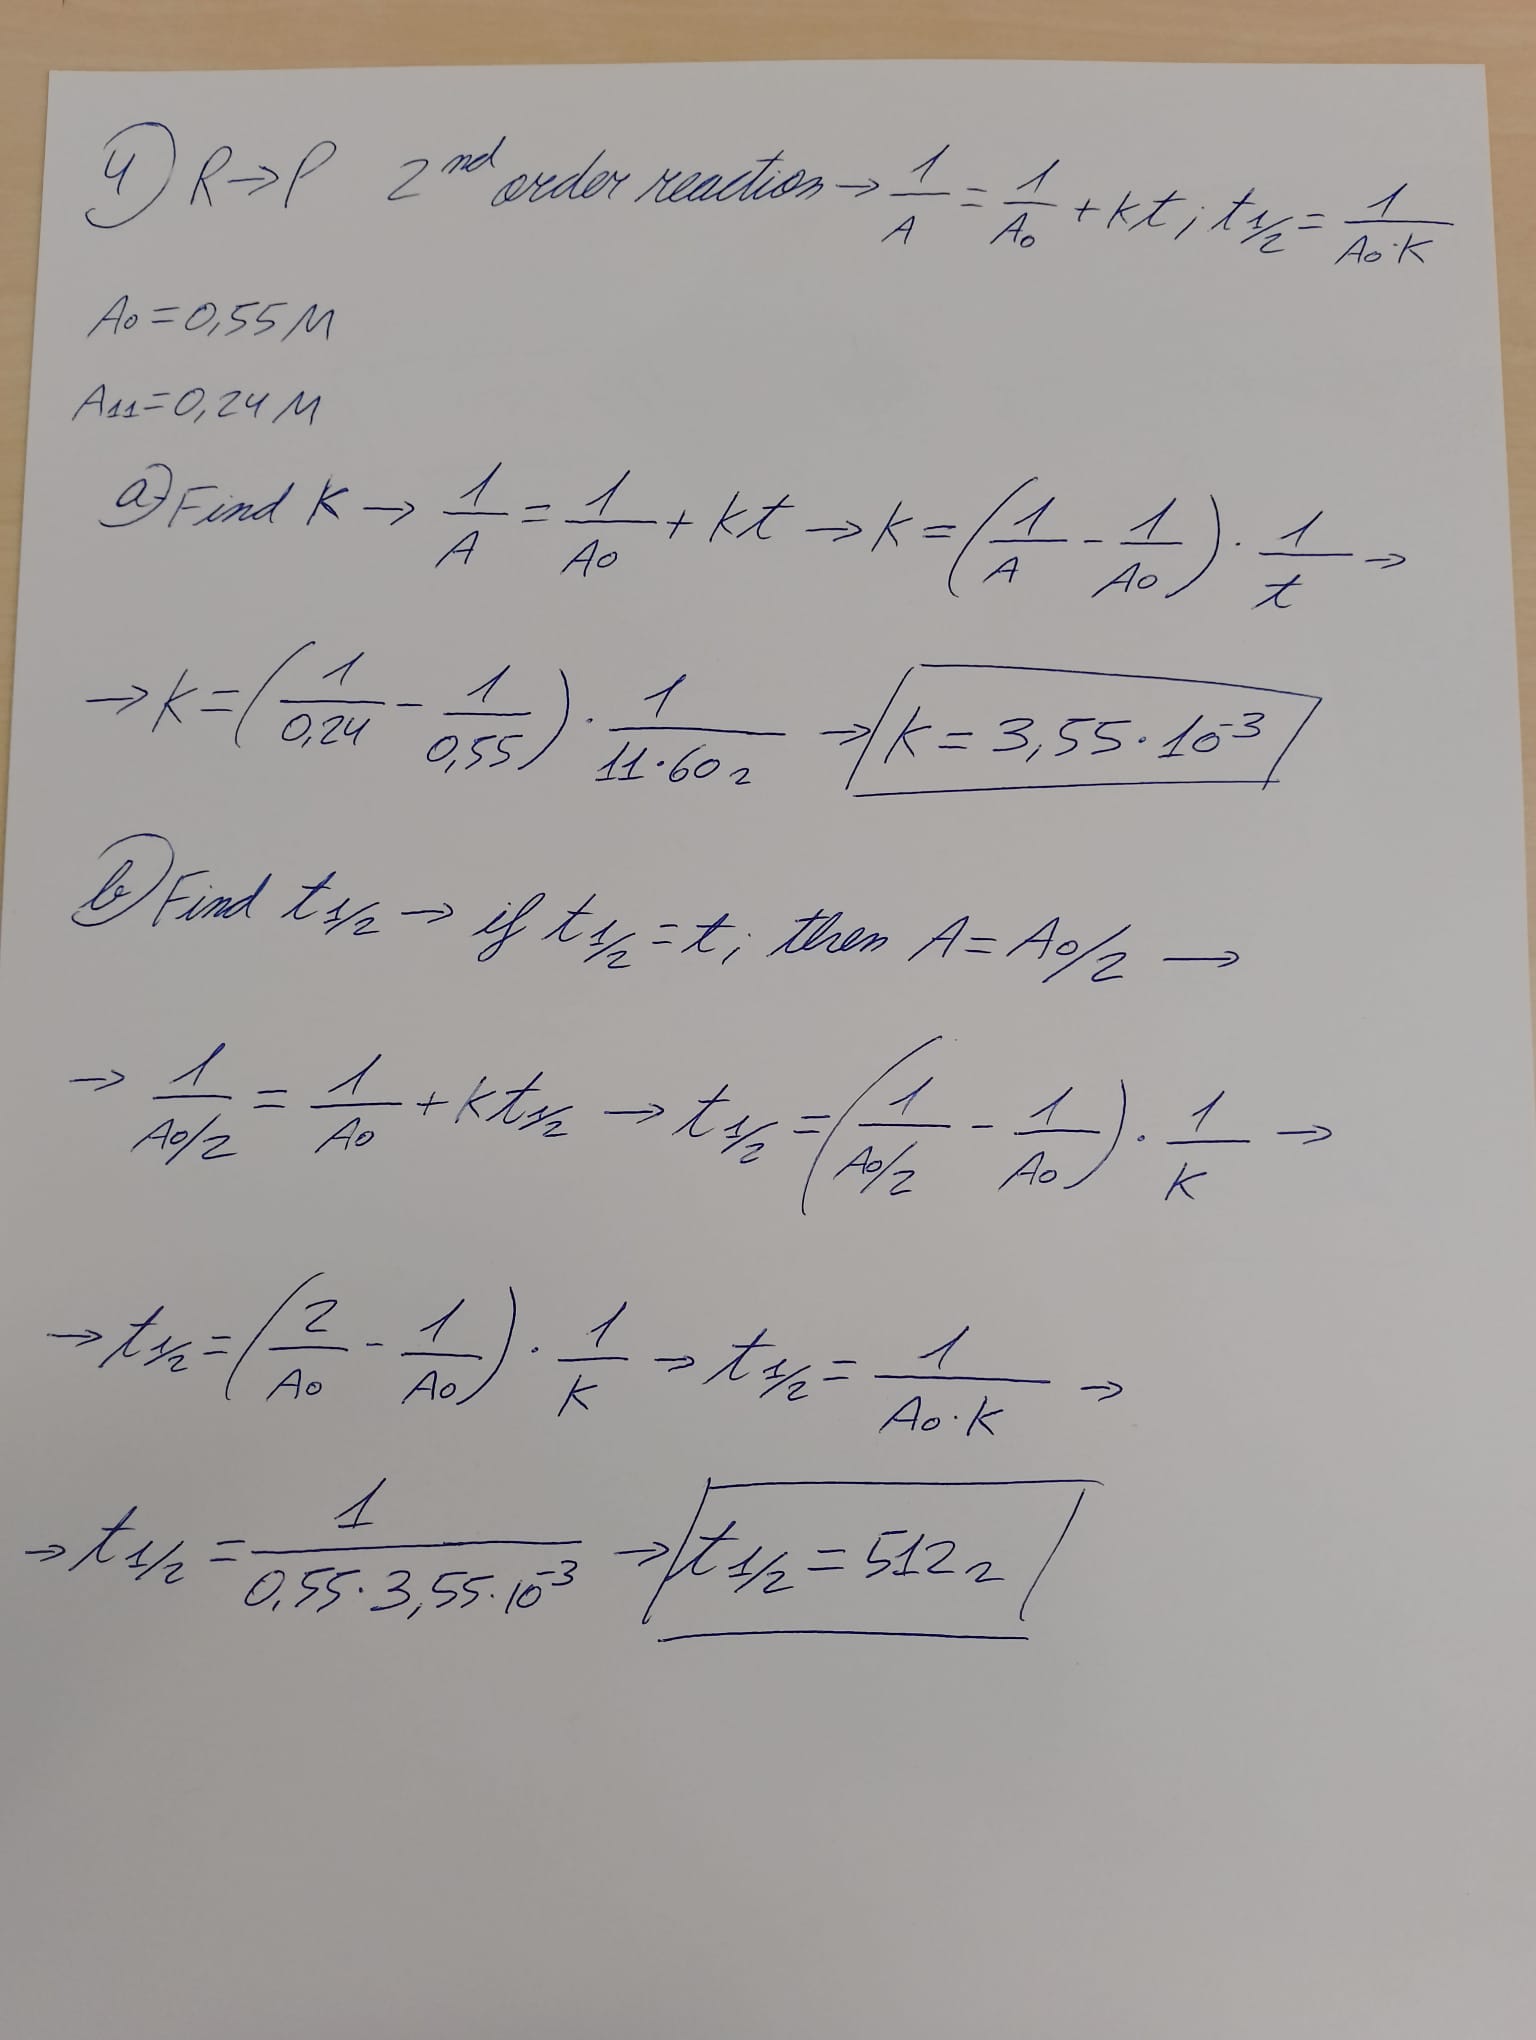 4) R→P 2nd order reaction → 1/A = 1/A₀ + kt; t₁/₂ = 1/(A₀·K)
A₀ = 0,55 M
A₁₁ = 0,24 M
a) Find K → 1/A = 1/A₀ + kt → K = (1/A - 1/A₀) · 1/t →
→ K = (1/0,24 - 1/0,55) · 1/(11·60 s) → K = 3,55·10⁻³
b) Find t₁/₂ → if t₁/₂ = t; then A = A₀/2 →
→ 1/(A₀/2) = 1/A₀ + kt₁/₂ → t₁/₂ = (1/(A₀/2) - 1/A₀) · 1/K →
→ t₁/₂ = (2/A₀ - 1/A₀) · 1/K → t₁/₂ = 1/(A₀·K) →
→ t₁/₂ = 1/(0,55·3,55·10⁻³) → t₁/₂ = 512 s